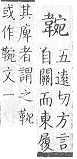 䩩
五遠切方言
自關而東履
其庳者謂之
或作文一